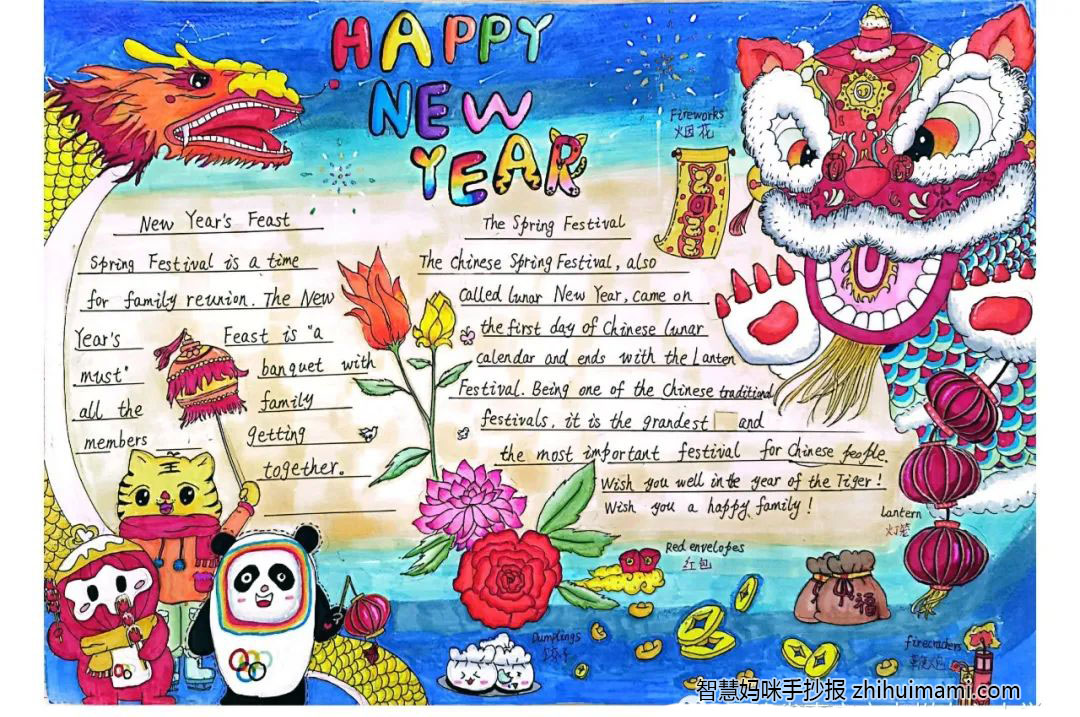 HAPPY
NEW
YEAR
Fireworks
烟花
New Year's Feast
Spring Festival is a time
for family reunion. The New
Year's Feast is "a
must" banquet with
all the family
members getting
together.
The Spring Festival
The Chinese Spring Festival, also
called lunar New Year, came on
the first day of Chinese lunar
calendar and ends with the Lanten
Festival. Being one of the Chinese traditional
festivals, it is the grandest and
the most important festival for Chinese people.
Wish you well in the year of the Tiger!
Wish you a happy family!
lantern
灯笼
Red envelopes
红包
福
Dumplings
饺子
firecrackers
王
智慧妈咪手抄报 zhihuimami.com